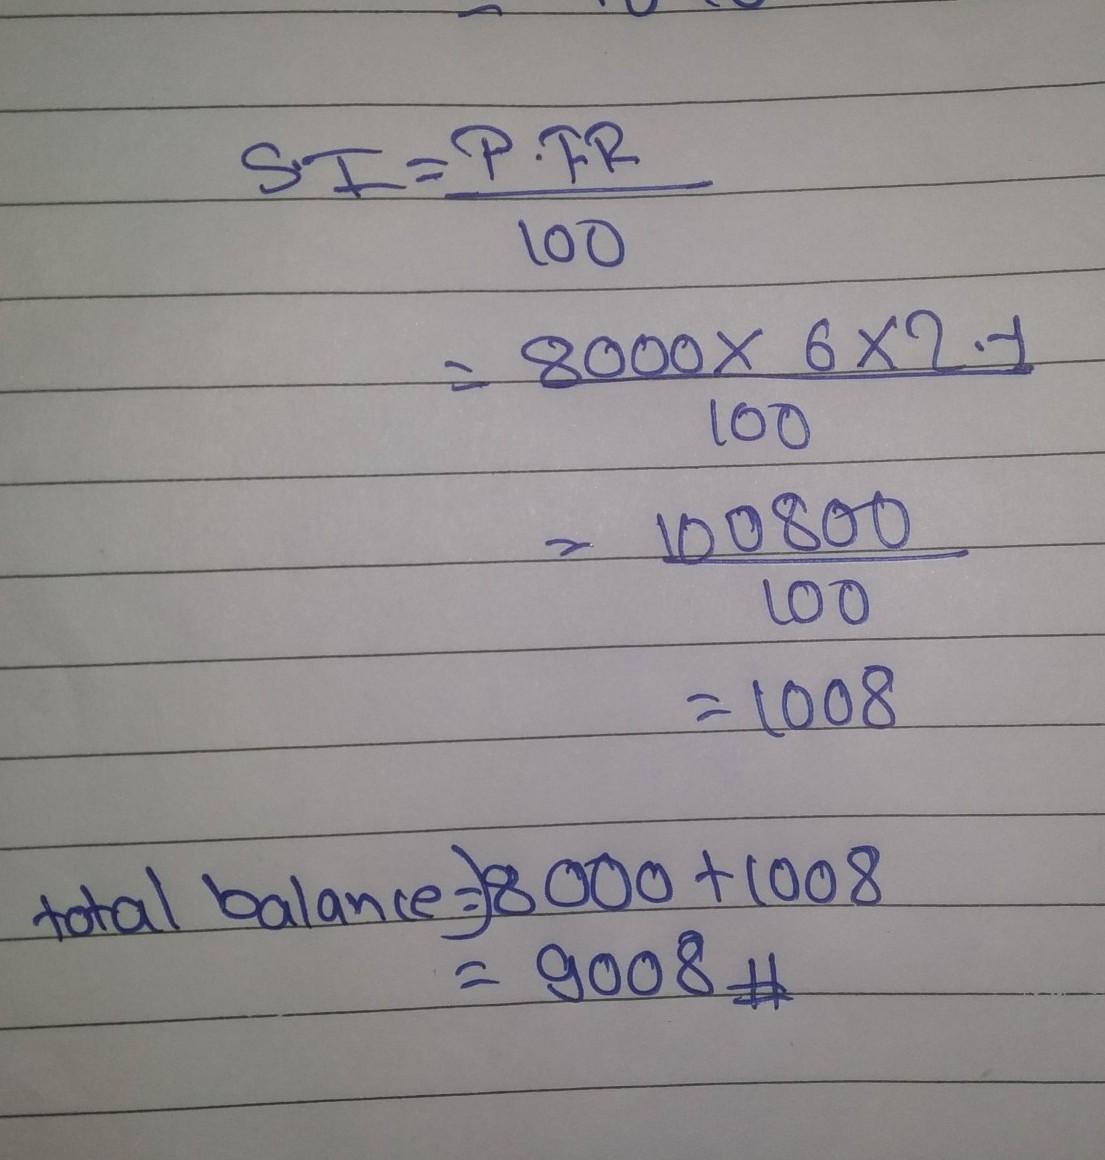 SI = P.TR
100
= 8000 × 6 × 2.1
100
= 100800
100
= 1008
total balance => 8000 + 1008
= 9008 #